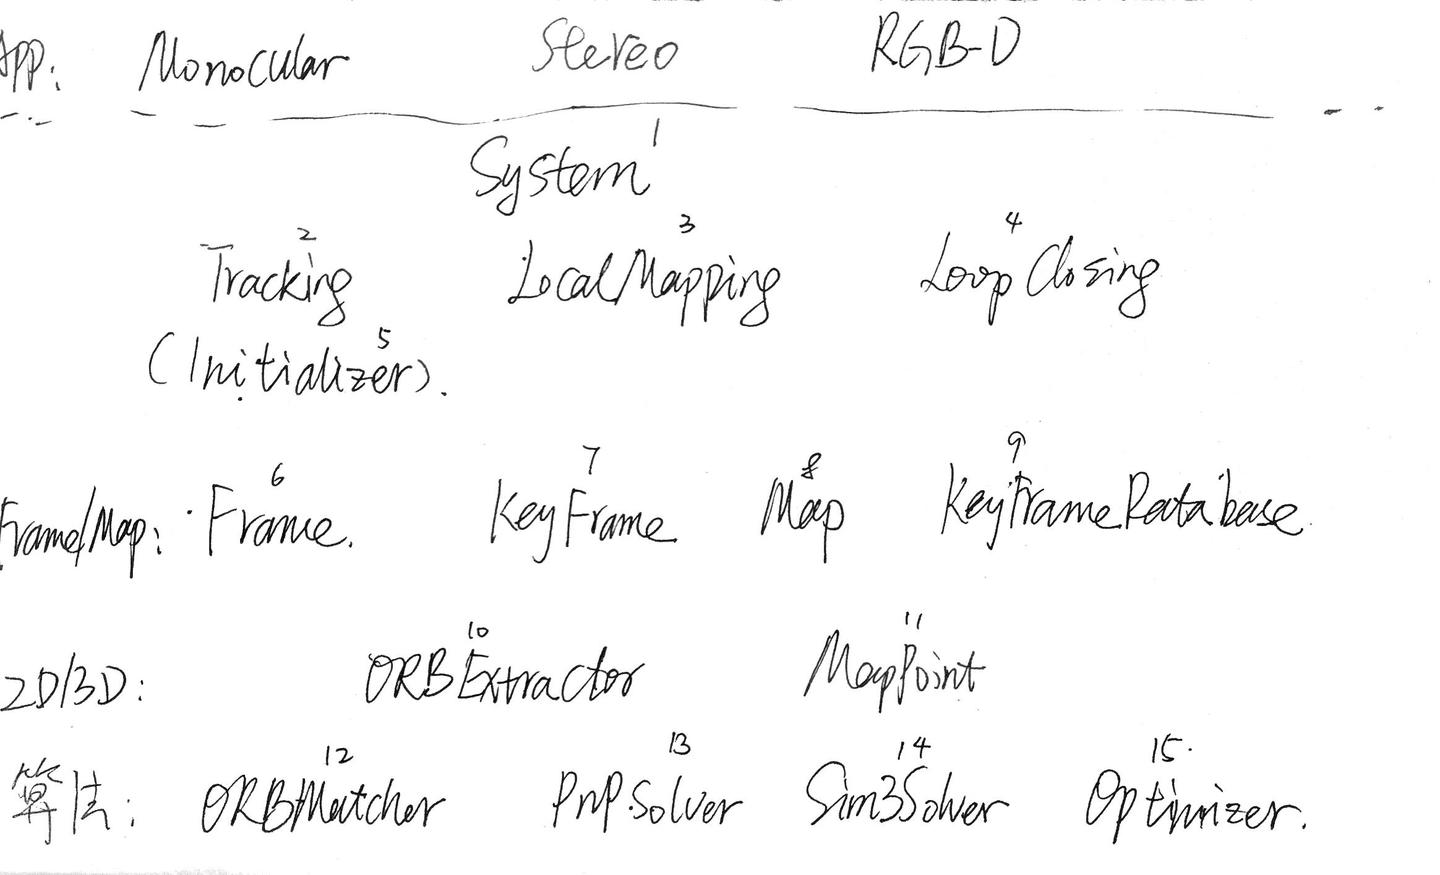 App: Monocular Stereo RGB-D
System 1
Tracking 2 LocalMapping 3 LoopClosing 4
(Initializer). 5
Frame/Map: Frame. 6 KeyFrame 7 Map 8 KeyFrameDatabase 9
2D/3D: ORBExtractor 10 MapPoint 11
算法: ORBMatcher 12 PnPSolver 13 Sim3Solver 14 Optimizer. 15